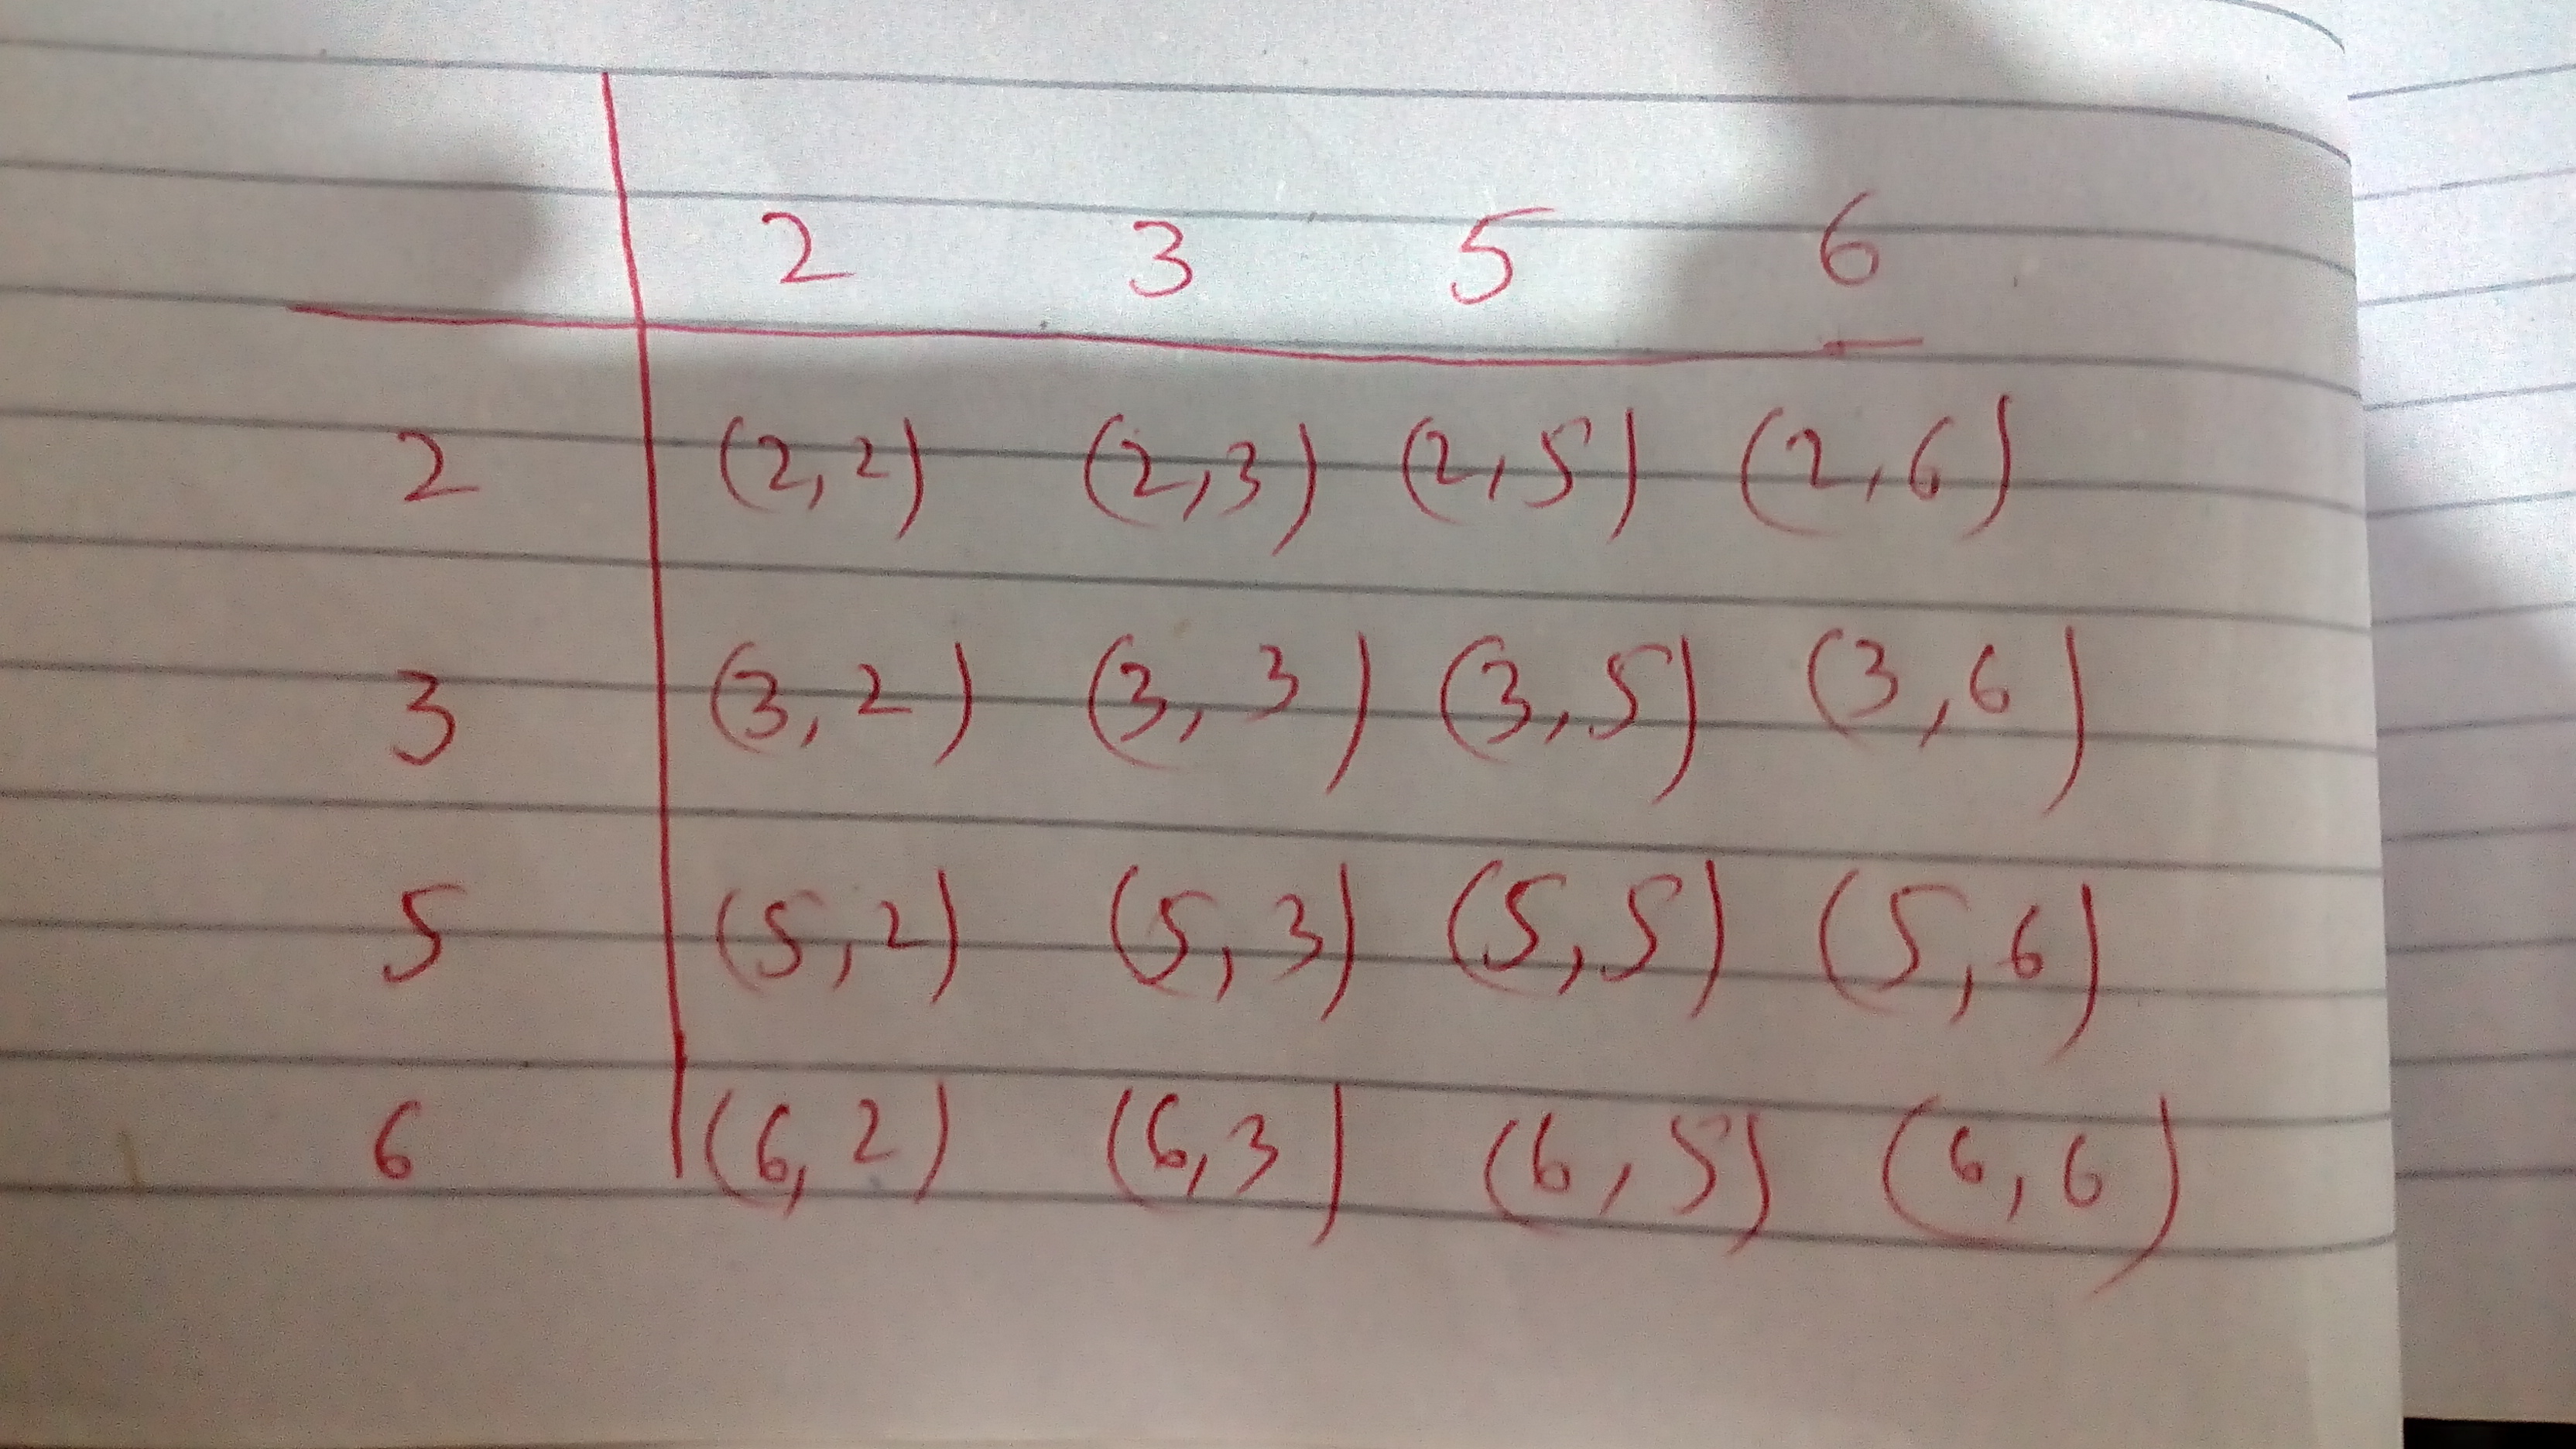 2 3 5 6
2 (2,2) (2,3) (2,5) (2,6)
3 (3,2) (3,3) (3,5) (3,6)
5 (5,2) (5,3) (5,5) (5,6)
6 (6,2) (6,3) (6,5) (6,6)